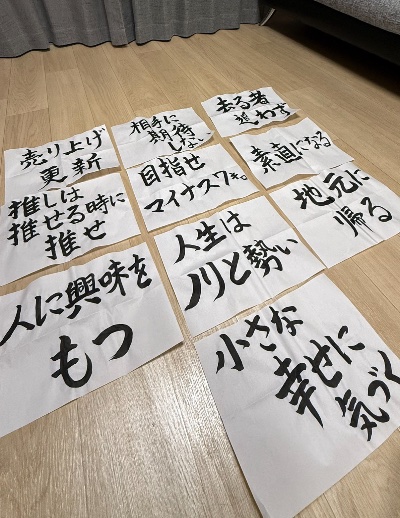 売り上げ
更新
相手に
期待
しない
去る者
追わず
推しは
推せる時に
推せ
目指せ
マイナス7キロ。
素直になる
人に興味を
もつ
人生は
ノリと勢い
地元に
帰る
小さな
幸せに
気づく